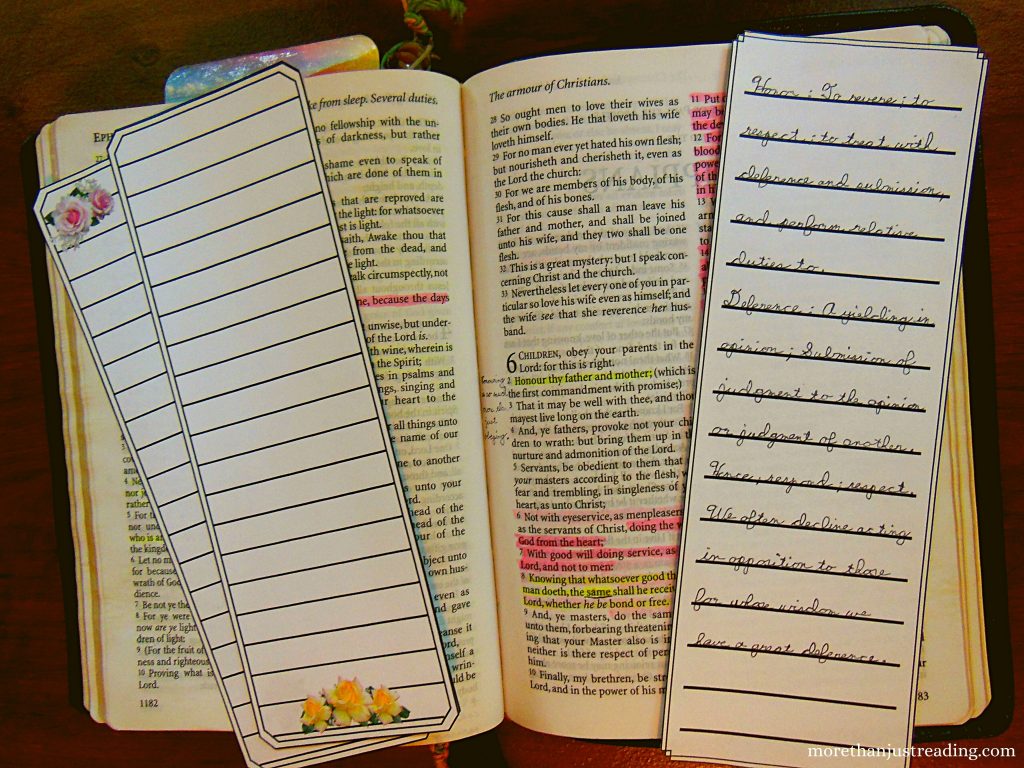 EPH
ke from sleep. Several duties.
no fellowship with the un-
s of darkness, but rather
shame even to speak of
hich are done of them in
s that are reproved are
the light: for whatsoever
st is light.
aith, Awake thou that
from the dead, and
e light.
alk circumspectly, not
ne, because the days
unwise, but under-
of the Lord is.
with wine, wherein is
the Spirit;
es in psalms and
ngs, singing and
r heart to the
all things unto
e name of our
e to another
s unto your
rd.
ead of the
ead of the
our of the
bject unto
own hus-
even as
nd gave
eanse it
ord,
mself a
wrin-
uld be
rather
5 For
nor un
who is a
the kingd
6 Let no m
for because
wrath of God
dience.
7 Be not ye the
8 For ye were
now are ye light
dren of light:
9 (For the fruit of
ness and righteous
10 Proving what
Lord.
1182
The armour of Christians.
28 So ought men to love their wives as
their own bodies. He that loveth his wife
loveth himself.
29 For no man ever yet hated his own flesh;
but nourisheth and cherisheth it, even as
the Lord the church:
30 For we are members of his body, of his
flesh, and of his bones.
31 For this cause shall a man leave his
father and mother, and shall be joined
unto his wife, and they two shall be one
flesh.
32 This is a great mystery: but I speak con-
cerning Christ and the church.
33 Nevertheless let every one of you in par-
ticular so love his wife even as himself; and
the wife see that she reverence her hus-
band.
6 CHILDREN, obey your parents in the
Lord: for this is right.
2 Honour thy father and mother; (which is
the first commandment with promise;)
3 That it may be well with thee, and thou
mayest live long on the earth.
4 And, ye fathers, provoke not your chi
dren to wrath: but bring them up in t
nurture and admonition of the Lord.
5 Servants, be obedient to them that
your masters according to the flesh, w
fear and trembling, in singleness of y
heart, as unto Christ;
6 Not with eyeservice, as menpleasers
as the servants of Christ, doing the w
God from the heart;
7 With good will doing service, as
Lord, and not to men:
8 Knowing that whatsoever good th
man doeth, the same shall he receiv
Lord, whether he be bond or free.
9 And, ye masters, do the sam
unto them, forbearing threatenin
ing that your Master also is i
neither is there respect of per
him.
10 Finally, my brethren, be str
Lord, and in the power of his m
11 Put
may b
the de
12 For
blood
powe
of th
in h
13
14
83
Honor : To revere ; to
respect ; to treat with
deference and submission,
and perform relative
duties to.
Deference : A yielding in
opinion ; Submission of
judgment to the opinion
or judgment of another.
Hence, respond ; respect.
We often decline acting
in opposition to those
for whose wisdom we
have a great deference.
morethanjustreading.com